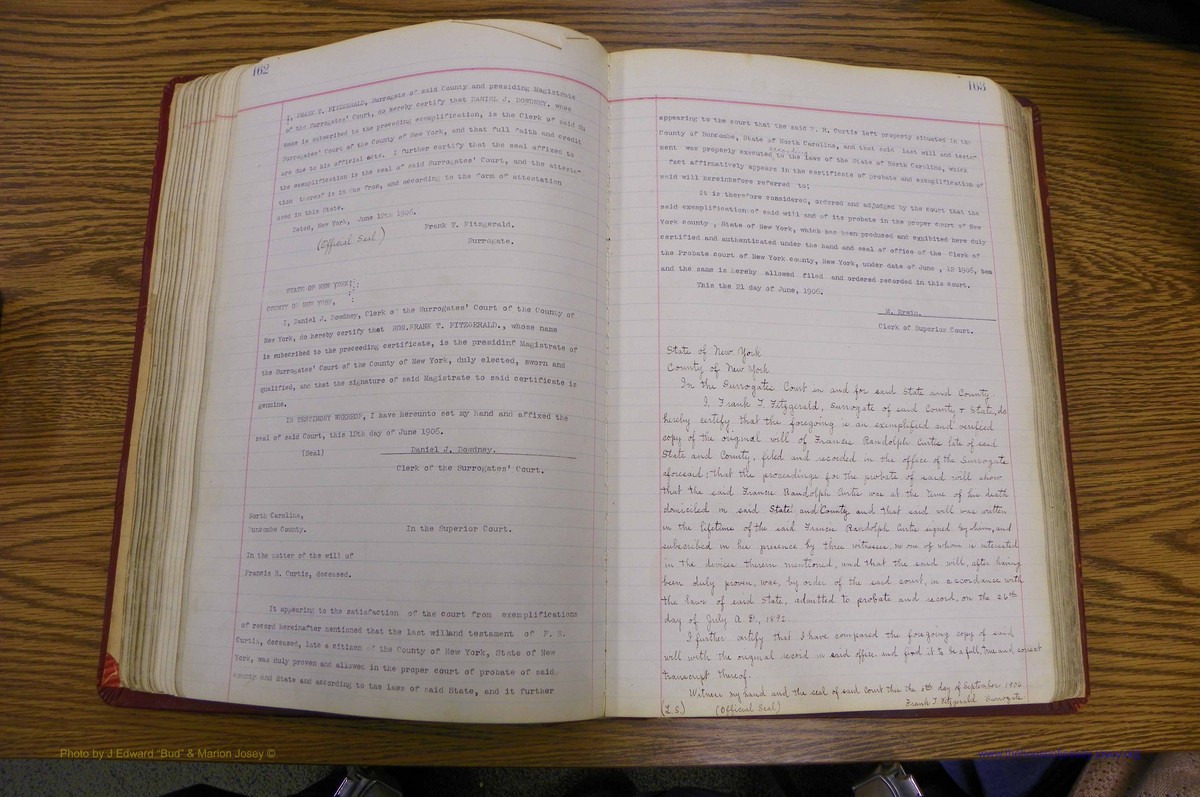 162
I, FRANK T. FITZGERALD, Surrogate of said County and presiding Magistrate
of the Surrogates' Court, do hereby certify that DANIEL J. DOWDNEY, whose
name is subscribed to the preceding exemplification, is the Clerk of said
Surrogates' Court of the County of New York, and that full faith and credit
are due to his official acts. I further certify that the seal affixed to
the exemplification is the seal of said Surrogates' Court, and the attesta-
tion thereof is in due from, and according to the form of attestation
used in this State.
Dated, New York, June 12th 1906.
(Official Seal) Frank T. Fitzgerald.
Surrogate.
STATE OF NEW YORK:
COUNTY OF NEW YORK,
I, Daniel J. Dowdney, Clerk of the Surrogates' Court of the County of
New York, do hereby certify that HON. FRANK T. FITZGERALD., whose name
is subscribed to the preceeding certificate, is the presidinf Magistrate of
the Surrogates' Court of the County of New York, duly elected, sworn and
qualified, and that the signature of said Magistrate to said certificate is
genuine.
IN TESTIMONY WHEREOF, I have hereunto set my hand and affixed the
seal of said Court, this 12th day of June 1906.
(Seal) Daniel J. Dowdney.
Clerk of the Surrogates' Court.
North Carolina,
Buncombe County. In the Superior Court.
In the matter of the will of
Francis R. Curtis, deceased.
It appearing to the satisfaction of the court from exemplifications
of record hereinafter mentioned that the last willand testament of F. R.
Curtis, deceased, late a citizen of the County of New York, State of New
York, was duly proven and allowed in the proper court of probate of said
county and State and according to the laws of said State, and it further
163
appearing to the court that the said F. R. Curtis left property situated in the
County of Buncombe, State of North Carolina, and that said last will and testa-
ment was properly executed according to the laws of the State of North Carolina, which
fact affirmatively appears in the certificate of probate and exemplification of
said will hereinbefore referred to;
It is therefore considered, ordered and adjudged by the court that the
said exemplification of said will and of its probate in the proper court of New
York county , State of New York, which has been produced and exhibited here duly
certified and authenticated under the hand and seal of office of the Clerk of
the Probate court of New York county, New York, under date of June , 12 1906, bem
and the same is hereby allowed filed and ordered recorded in this court.
This the 21 day of June, 1906.
M. Erwin.
Clerk of Superior Court.
State of New York
County of New York
In the Surrogates Court in and for said State and County.
I, Frank T. Fitzgerald, Surrogate of said County & State, do
hereby certify, that the foregoing is an exemplified and verified
copy of the original will of Francis Randolph Curtis late of said
State and County, filed and recorded in the office of the Surrogate
aforesaid; that the proceedings for the probate of said will show
that the said Francis Randolph Curtis was at the time of his death
domiciled in said State and County and that said will was written
in the lifetime of the said Francis Randolph Curtis signed by him, and
subscribed in his presence by three witnesses, no one of whom is interested
in the devises therein mentioned, and that the said will, after having
been duly proven, was, by order of the said court, in accordance with
the laws of said State, admitted to probate and record, on the 26th
day of July A. D., 1892.
I further certify that I have compared the foregoing copy of said
will with the original record in said office and find it to be a full, true and correct
transcript thereof.
Witness my hand and the seal of said Court this the 5th day of September 1906
(L.S.) (Official Seal) Frank T. Fitzgerald Surrogate
Photo by J Edward "Bud" & Marion Josey ©